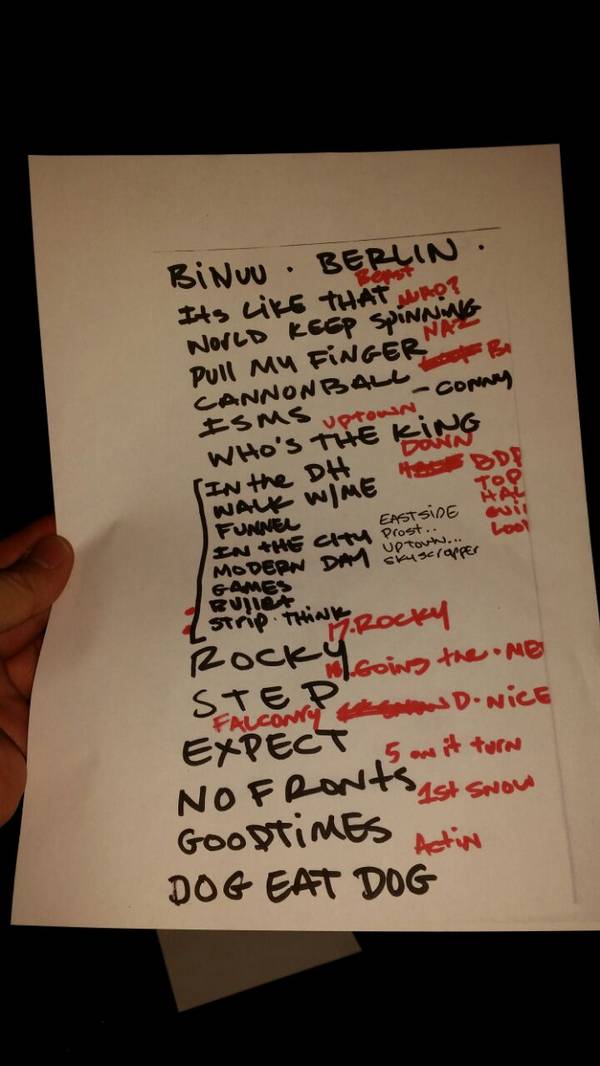 BiNUU · BERLIN ·
Beast
Its LiKE THAT
WORLD KEEP SPiNNiNG
PUll MY FiNGER NAZ
CANNONBALL
ISMS - CONNY
UPTOWN
WHO'S THE KING
DOWN
IN the DH BDP
WALK W/ME TOP
FUNNEL EASTSIDE HAL
IN tHE CitY Prost..
MODERN DAY UPTOWN...
GAMES SKYSCrAPPER
BUllet
StriP · THiNK
17. ROCKY
ROCKY
Going the · ME
STEP
FALCONrY D · NiCE
EXPECT
5 on it turn
NO FRONtS 1st SNOW
GOODTiMES
Actin
DOG EAT DOG